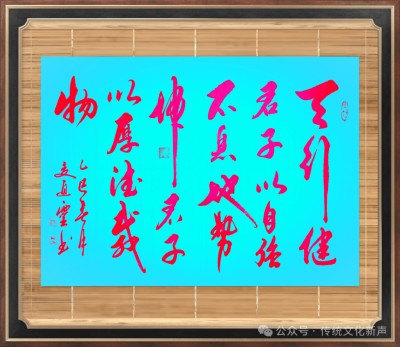 天行健
君子以自强
不息地势
坤君子
以厚德载
物
乙巳春月
公众号·传统文化新声